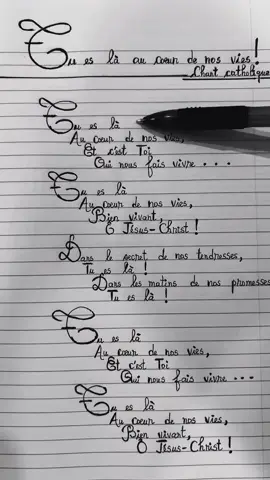 Tu es là au cœur de nos vies !
Chant catholique
Tu es là
Au cœur de nos vies,
Et c'est Toi
Qui nous fais vivre ...
Tu es là
Au cœur de nos vies,
Bien vivant,
Ô Jésus-Christ !
Dans le secret de nos tendresses,
Tu es là !
Dans les matins de nos promesses
Tu es là !
Tu es là
Au cœur de nos vies,
Et c'est Toi
Qui nous fais vivre ...
Tu es là
Au cœur de nos vies,
Bien vivant,
Ô Jésus-Christ !